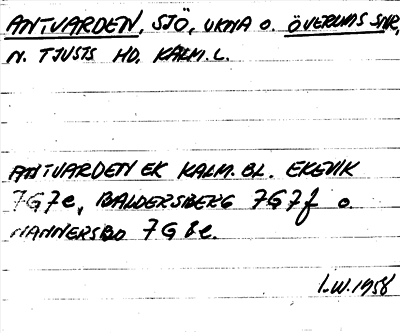 ANTVARDEN, SJÖ, UKNA O. ÖVERUMS SNR,
N. TJUSTS HD, KALM. L.
ANTVARDEN EK KALM. BL. EKEVIK
7G7e, BALDERSBERG 7G7f o.
MANNERSBO 7G8e.
I.W. 1958